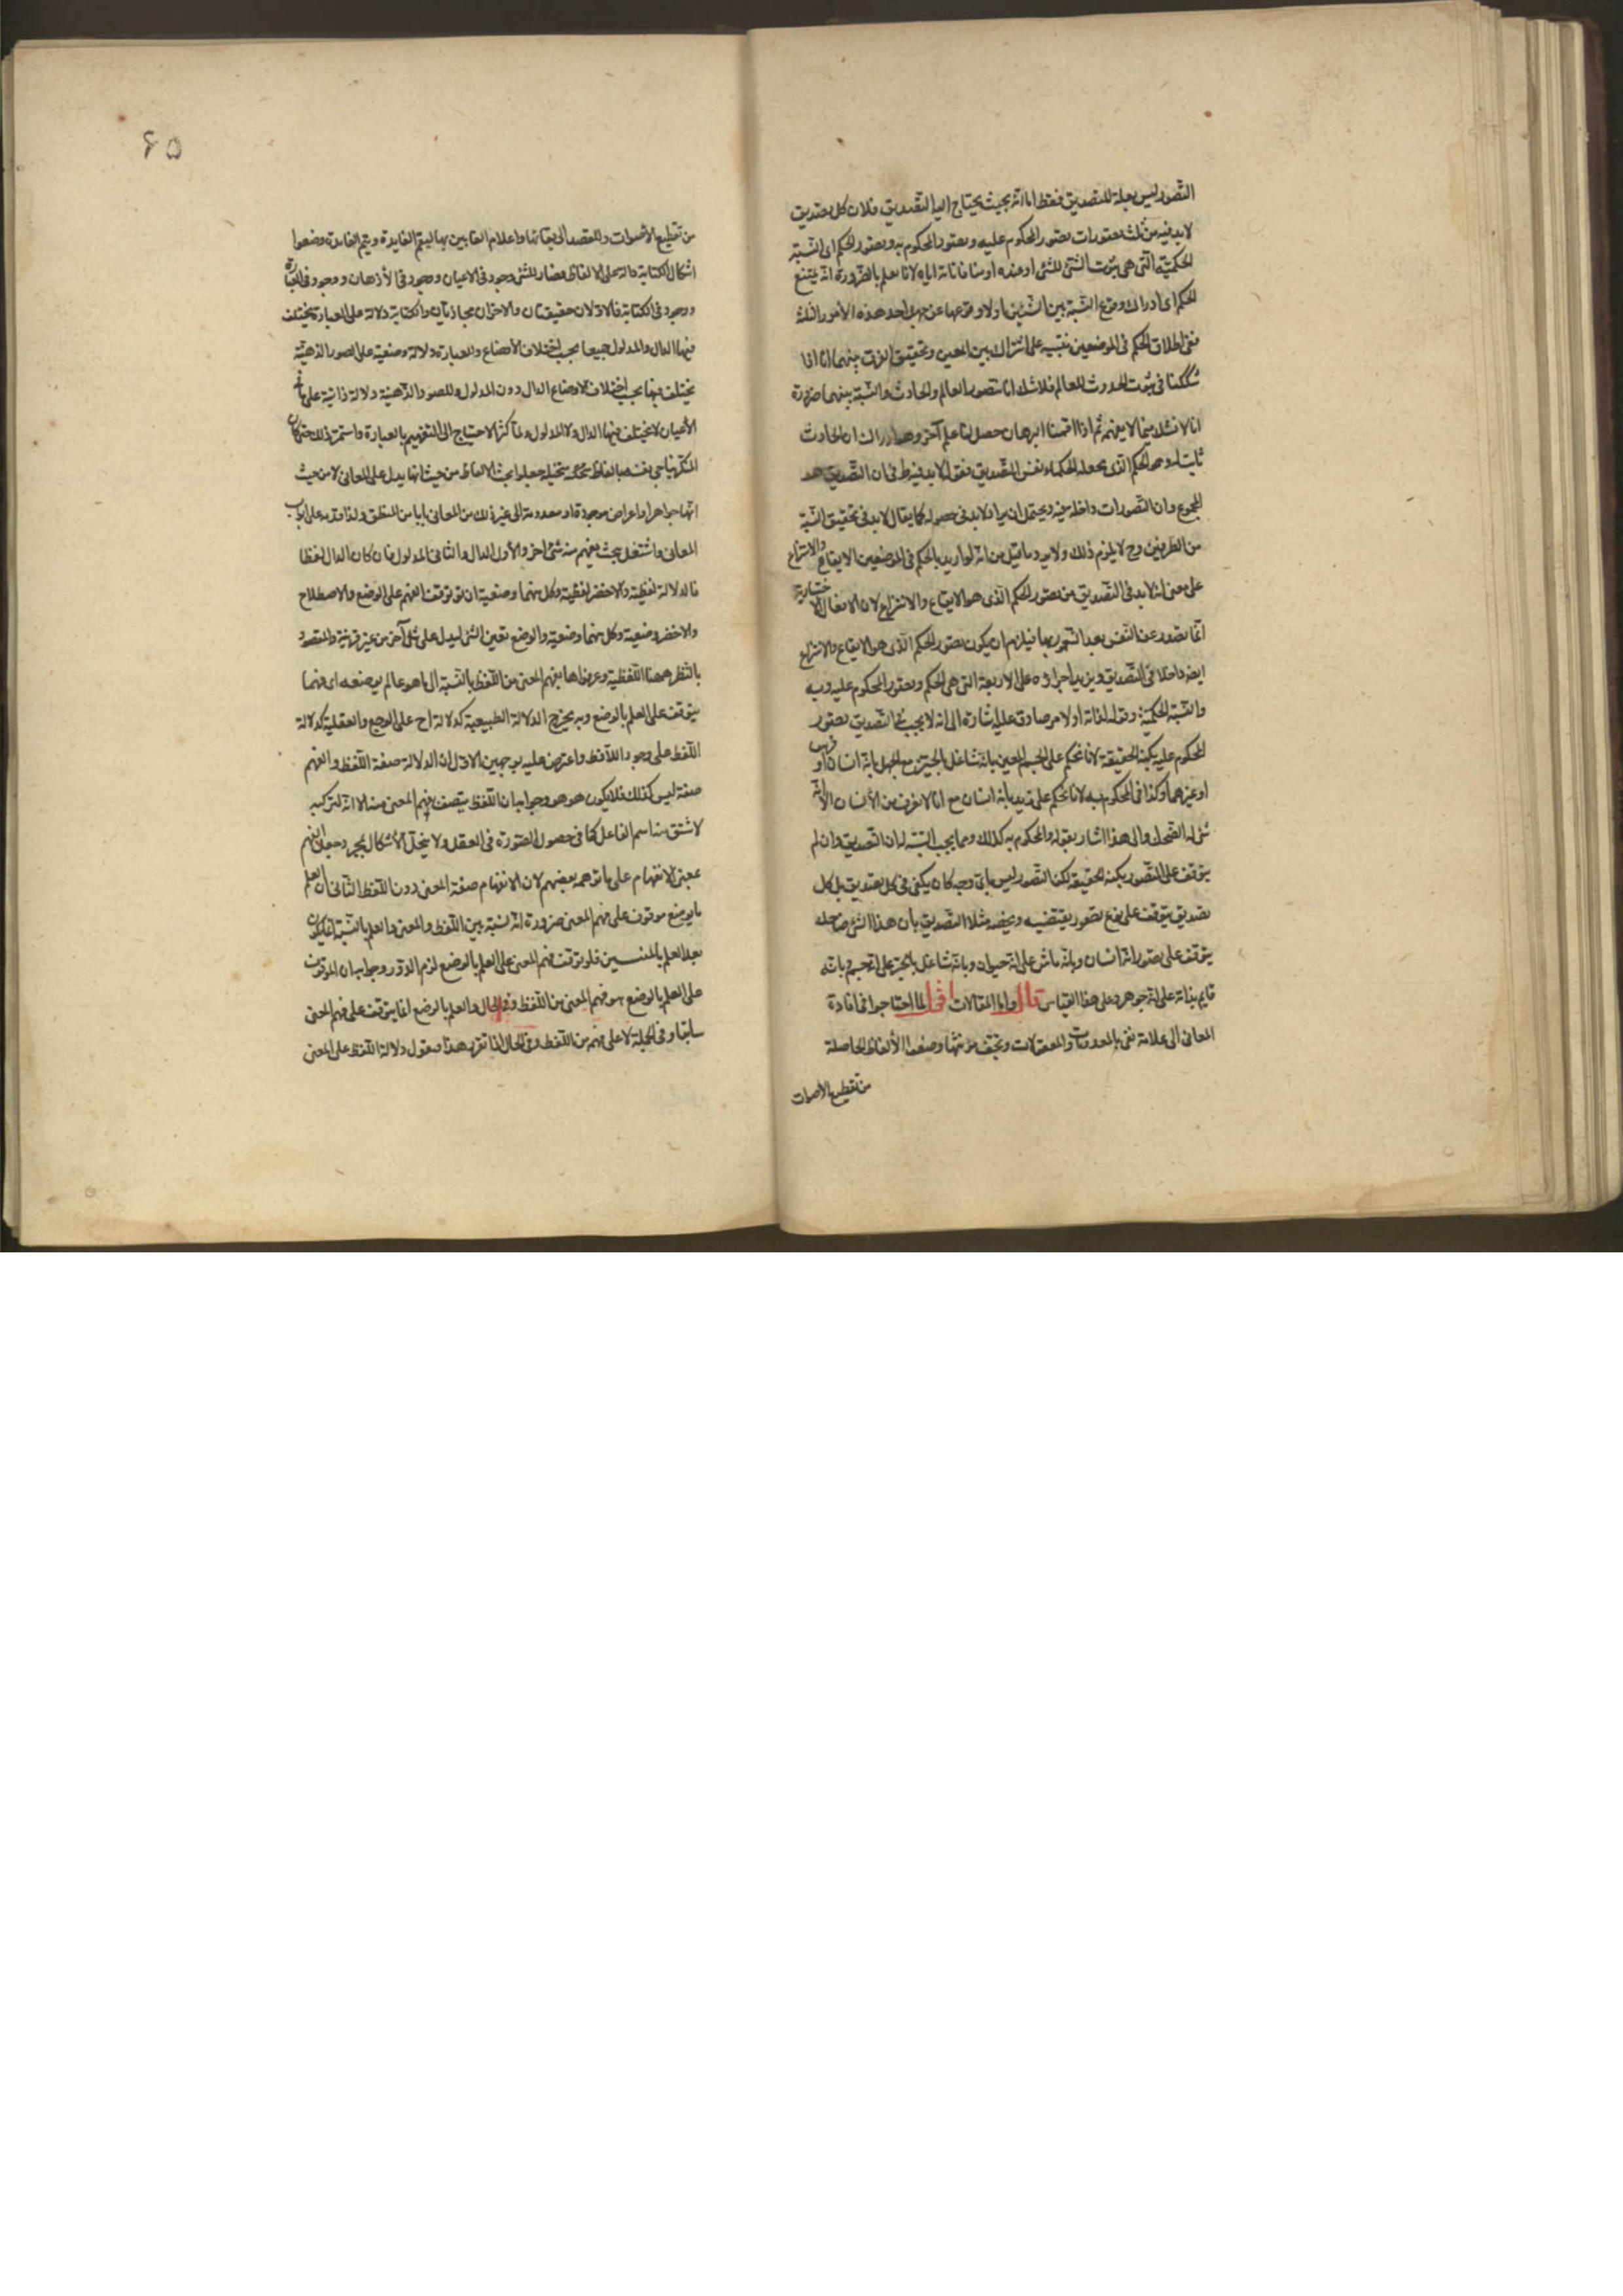 التصور ليس بعلة للتصديق فقط اما انه بحيث يحتاج اليه التصديق فلان كل تصديق
لابد فيه من ثلث تصورات تصور المحكوم عليه وتصور المحكوم به وتصور الحكم اى النسبة
الحكمية التى هى ثبوت الشئ للشئ او عنده او منافاته اياه لانا نعلم بالضرورة انه يمتنع
الحكم اى ادراك وقوع النسبة بين الشيئين او لا وقوعها عن جهل احد هذه الأمور الثلثة
ففى اطلاق الحكم فى الموضعين تنبيه على اشتراك بين المعنيين وتحقيق الفرق بينهما انا اذا
شككنا فى ثبوت الحدوث للعالم فلا شك انا نتصور العالم والحادث والنسبة بينهما ضرورة
انا لا نشك فيما لا نفهم ثم اذا اقمنا البرهان حصل لنا علم آخر وهو ادراك ان الحادث
ثابت له وهو الحكم الذى جعله الحكماء نفس التصديق فقوله لابد فيه ظ فى ان التصديق هو
المجموع وان التصورات داخلة فيه ويحتمل ان يراد لابد فى حصوله كما يقال لابد فى تحقيق النسبة
من الطرفين وح لا يلزم ذلك ولا يرد ما قيل من انه لو اريد بالحكم فى الموضعين الايقاع والانتزاع
على معنى انه لابد فى التصديق من تصور الحكم الذى هو الايقاع والانتزاع لان الافعال الاختيارية
انما تصدر عن النفس بعد الشعور بها فيلزم ان يكون تصور الحكم الذى هو الايقاع والانتزاع
ايضه داخلا فى التصديق ويزيد اجزاؤه على الاربعة التى هى الحكم وتصور المحكوم عليه وبه
والنسبة الحكمية وقوله لذاته او لامر صادق عليه اشارة الى انه لا يجب فى التصديق تصور
المحكوم عليه بكنه الحقيقة لانا نحكم على الجسم المعين بانه شاغل للحيز مع الجهل بانه انسان او فرس
او غيرهما وكذا فى المحكوم به لانا نحكم على زيد بانه انسان مع انا لا نعرف من الأنسان الا انه
شئ له الضحك والى هذا اشار بقوله والمحكوم به كذلك ومما يجب التنبه له ان التصديق وان لم
يتوقف على التصور بكنه الحقيقة لكن التصور ليس باى وجه كان يكفى فى كل تصديق بل كل
تصديق يتوقف على نوع تصور يقتضيه ويخصه مثلا التصديق بأن هذا الشئ ضاحك
يتوقف على تصور انه انسان وبانه ماش على انه حيوان وبانه شاغل بالحيز على انه جسم وبانه
قايم بذاته على انه جوهر وعلى هذا القياس قال واما المقالات اقول لما احتاجوا فى افادة
المعانى الى علامة تفى بالمعدومات والمعقولات وتخف مؤنتها وضعوا الألفاظ الحاصلة
من تقطيع الاصوات
۶۵
من تقطيع الأصوات وللقصد الى بقائها واعلام الغائبين بها ليعم الفايدة ويتم العايدة وضعوا
اشكال الكتابة دالة على الالفاظ فصار للشئ وجود فى الاعيان ووجود فى الأذهان ووجود فى العبارة
ووجود فى الكتابة فالاولان حقيقيان والاخران مجازيان والكتابة دلالة على العبارة يختلف
فيها الدال والمدلول جميعا بحسب اختلاف الأوضاع وللعبارة دلالة وضعية على الصور الذهنية
يختلف فيها بحسب اختلاف الاوضاع الدال دون المدلول وللصور الذهنية دلالة ذاتية على ما فى
الأعيان لا يختلف فيها الدال ولا المدلول ولما كثر الاحتياج الى التفهيم بالعبارة واستمر ذلك حتى كان
المتكلم يناجى نفسه بالفاظ متخيلة جعلوا بحث الالفاظ من حيث انها يدل على المعانى لا من حيث
انها جواهر او اعراض موجودة او معدومة الى غير ذلك من المعانى بابا من المنطق ولذا قدمه على ابواب
المعانى واشتغل ببحث يفهم منه شئ اخر والأول الدال والثانى المدلول فان كان الدال لفظا
فالدلالة لفظية والا فغير لفظية وكل منهما وضعية ان توقف الفهم على الوضع والاصطلاح
والا فغير وضعية وكل منهما وضعية والوضع تعيين الشئ ليدل على شئ آخر من غير قرينة والمقصود
بالنظر ههنا اللفظية وعرفوها بفهم المعنى من اللفظ بالنسبة الى ما هو عالم بوضعه اى فهما
يتوقف على العلم بالوضع وبه يخرج الدلالة الطبيعية كدلالة اح على الوجع والعقلية كدلالة
اللفظ على وجود اللافظ واعترض عليه بوجهين الاول ان الدلالة صفة اللفظ والفهم
صفة ليس كذلك فلا يكون هو هو وجوابه ان اللفظ يتصف بفهم المعنى منه الا انه لتركبه
لا شتق منه اسم الفاعل كما فى حصول الصورة فى العقل ولا ينحل الأشكال بمجرد جعل الفهم
بمعنى الانفهام على ما توهمه بعضهم لان الانفهام صفة المعنى دون اللفظ الثانى ان العلم
بالوضع موقوف على فهم المعنى ضرورة انه نسبة بين اللفظ والمعنى والعلم بالنسبة انما يكون
بعد العلم بالمنتسبين فلو توقف فهم المعنى على العلم بالوضع لزم الدور وجوابه ان الموقوف
على العلم بالوضع هو فهم المعنى من اللفظ وفى الحال والعلم بالوضع انما يتوقف على فهم المعنى
سابقا وفى الجملة لا على فهمه من اللفظ وفى الحال اذا تقرر هذا فنقول دلالة اللفظ على المعنى